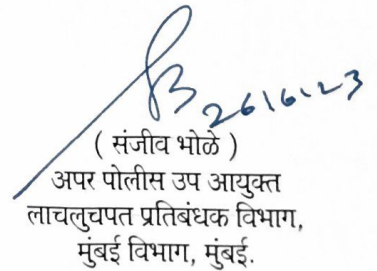 26/6/23
( संजीव भोळे )
अपर पोलीस उप आयुक्त
लाचलुचपत प्रतिबंधक विभाग,
मुंबई विभाग, मुंबई.